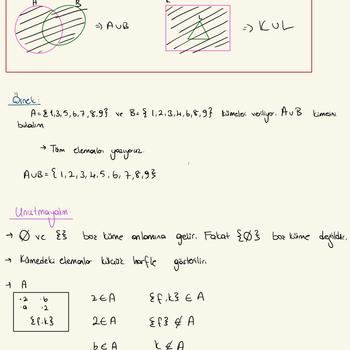 A B
⇒ A∪B
K
L
⇒ K∪L
Örnek:
A={1,3,5,6,7,8,9} ve B={1,2,3,4,6,8,9} kümeleri veriliyor. A∪B kümesini
bulalım.
→ Tüm elemanları yazıyoruz.
A∪B={1,2,3,4,5,6,7,8,9}
Unutmayalım:
→ ∅ ve {} boş küme anlamına gelir. Fakat {∅} boş küme değildir.
→ Kümedeki elemanlar küçük harfle gösterilir.
→ A
.2 .b
.a .2
{f,k}
2∈A {f,k}∈A
2∈A {f}∉A
b∈A k∉A